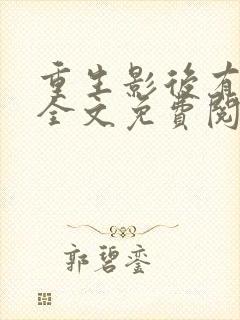 重生影後有
全文免費閱
郭碧鑾